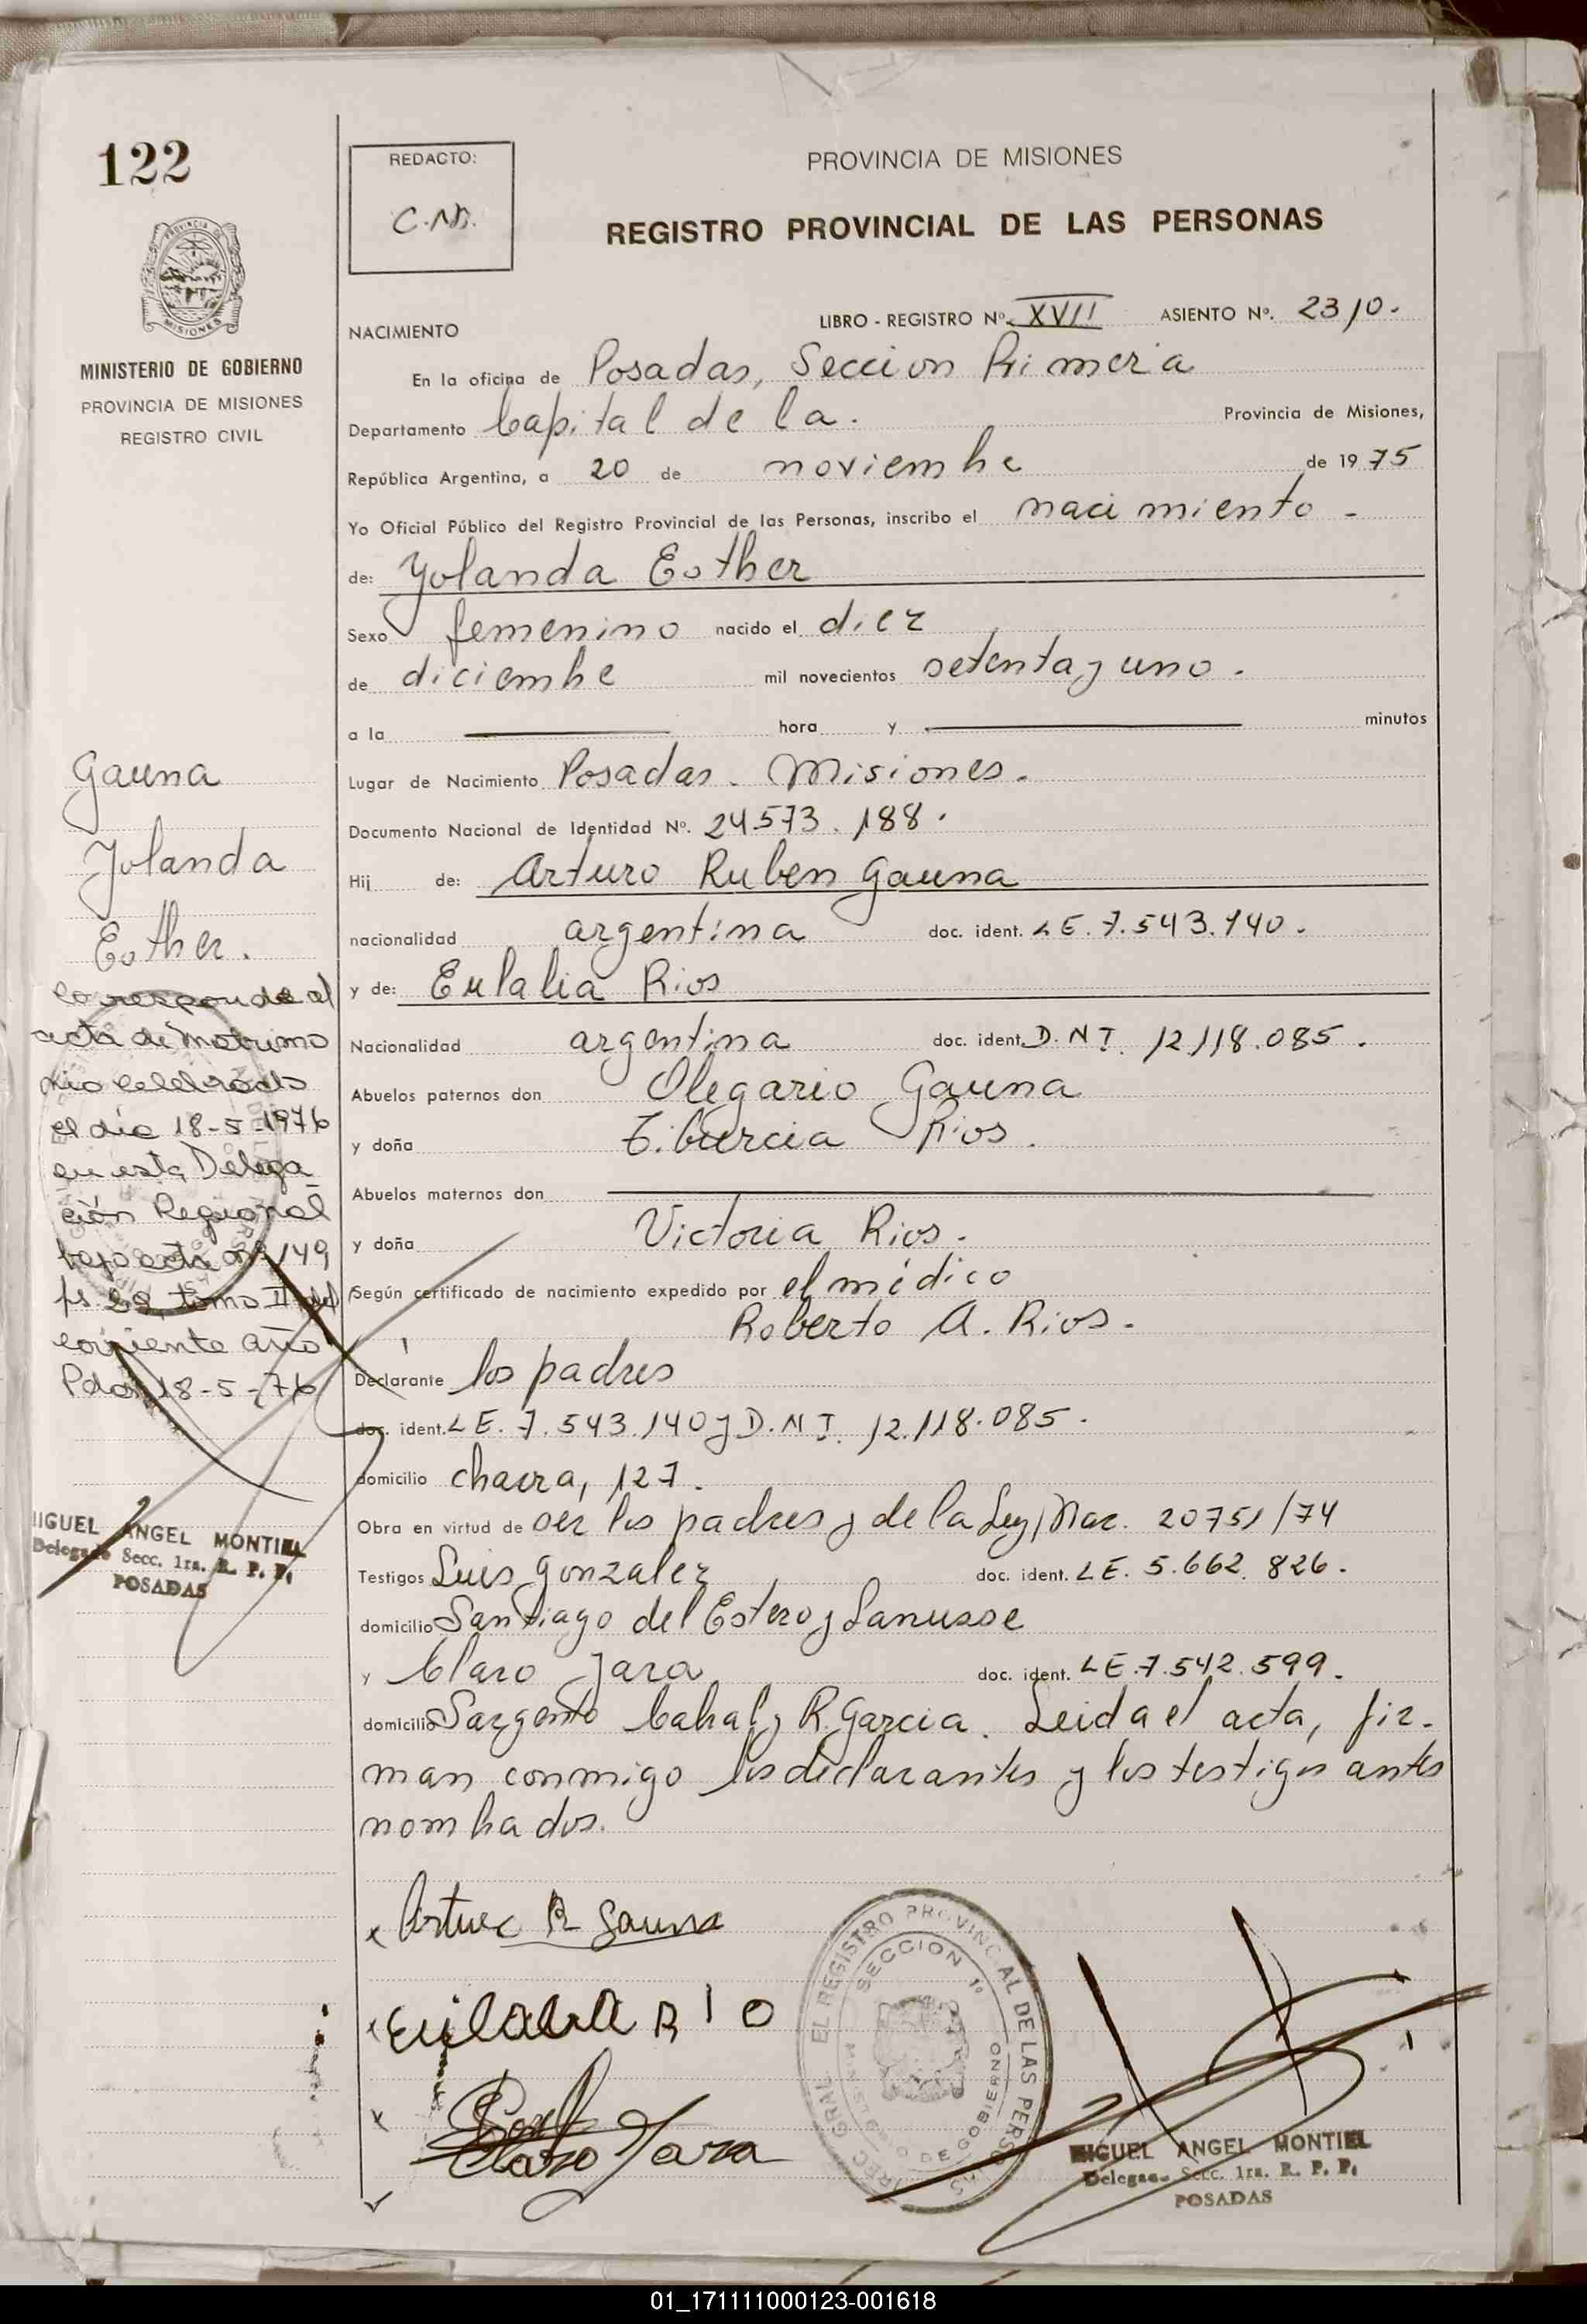 122
REDACTO:
C.N.
PROVINCIA DE MISIONES
REGISTRO PROVINCIAL DE LAS PERSONAS
MISIONES
MINISTERIO DE GOBIERNO
PROVINCIA DE MISIONES
REGISTRO CIVIL
NACIMIENTO
LIBRO - REGISTRO Nº. XVII ASIENTO Nº. 2310.
En la oficina de Posadas, Seccion Primera
Departamento Capital de la. Provincia de Misiones,
República Argentina, a 20 de noviembre de 1975
Yo Oficial Público del Registro Provincial de las Personas, inscribo el nacimiento -
de: Yolanda Esther
Sexo femenino nacido el diez
de diciembre mil novecientos setenta y uno.
a la hora y minutos
Lugar de Nacimiento Posadas. Misiones.
Documento Nacional de Identidad Nº. 24.573.188.
Hij de: Arturo Ruben Gauna
nacionalidad argentina doc. ident. LE. 7.543.140.
y de: Eulalia Rios
Nacionalidad argentina doc. ident. D.N.I. 12.118.085.
Abuelos paternos don Olegario Gauna
y doña Tiburcia Rios.
Abuelos maternos don
y doña Victoria Rios.
Según certificado de nacimiento expedido por el médico
Roberto A. Rios.
Declarante los padres
doc. ident. LE. 7.543.140 y D.N.I. 12.118.085.
domicilio chacra, 127.
Obra en virtud de ser los padres y de la Ley Nac. 20751/74
Testigos Luis Gonzalez doc. ident. LE. 5.662.826.
domicilio Santiago del Estero y Lanusse
y Claro Jara doc. ident. LE. 7.542.599.
domicilio Sargento Cabral y R. Garcia. Leida el acta, fir-
man conmigo los declarantes y los testigos antes
nombrados.
Gauna
Yolanda
Esther.
Corresponde al
acta de matrimo
nio celebrado
el día 18-5-1976
en esta Delega
ción Regional
bajo acta nº 149
tomo II del
corriente año
Pdas 18-5-76
MIGUEL ANGEL MONTIEL
Delegado Secc. 1ra. R. P. P.
POSADAS
x Arturo R Gauna
x Eulalia Rio
x
Claro Jara
DIREC. GRAL. EL REGISTRO PROVINCIAL DE LAS PERSONAS
SECCION 1º
MINISTERIO DE GOBIERNO
MIGUEL ANGEL MONTIEL
Delegado Secc. 1ra. R. P. P.
POSADAS
01_171111000123-001618